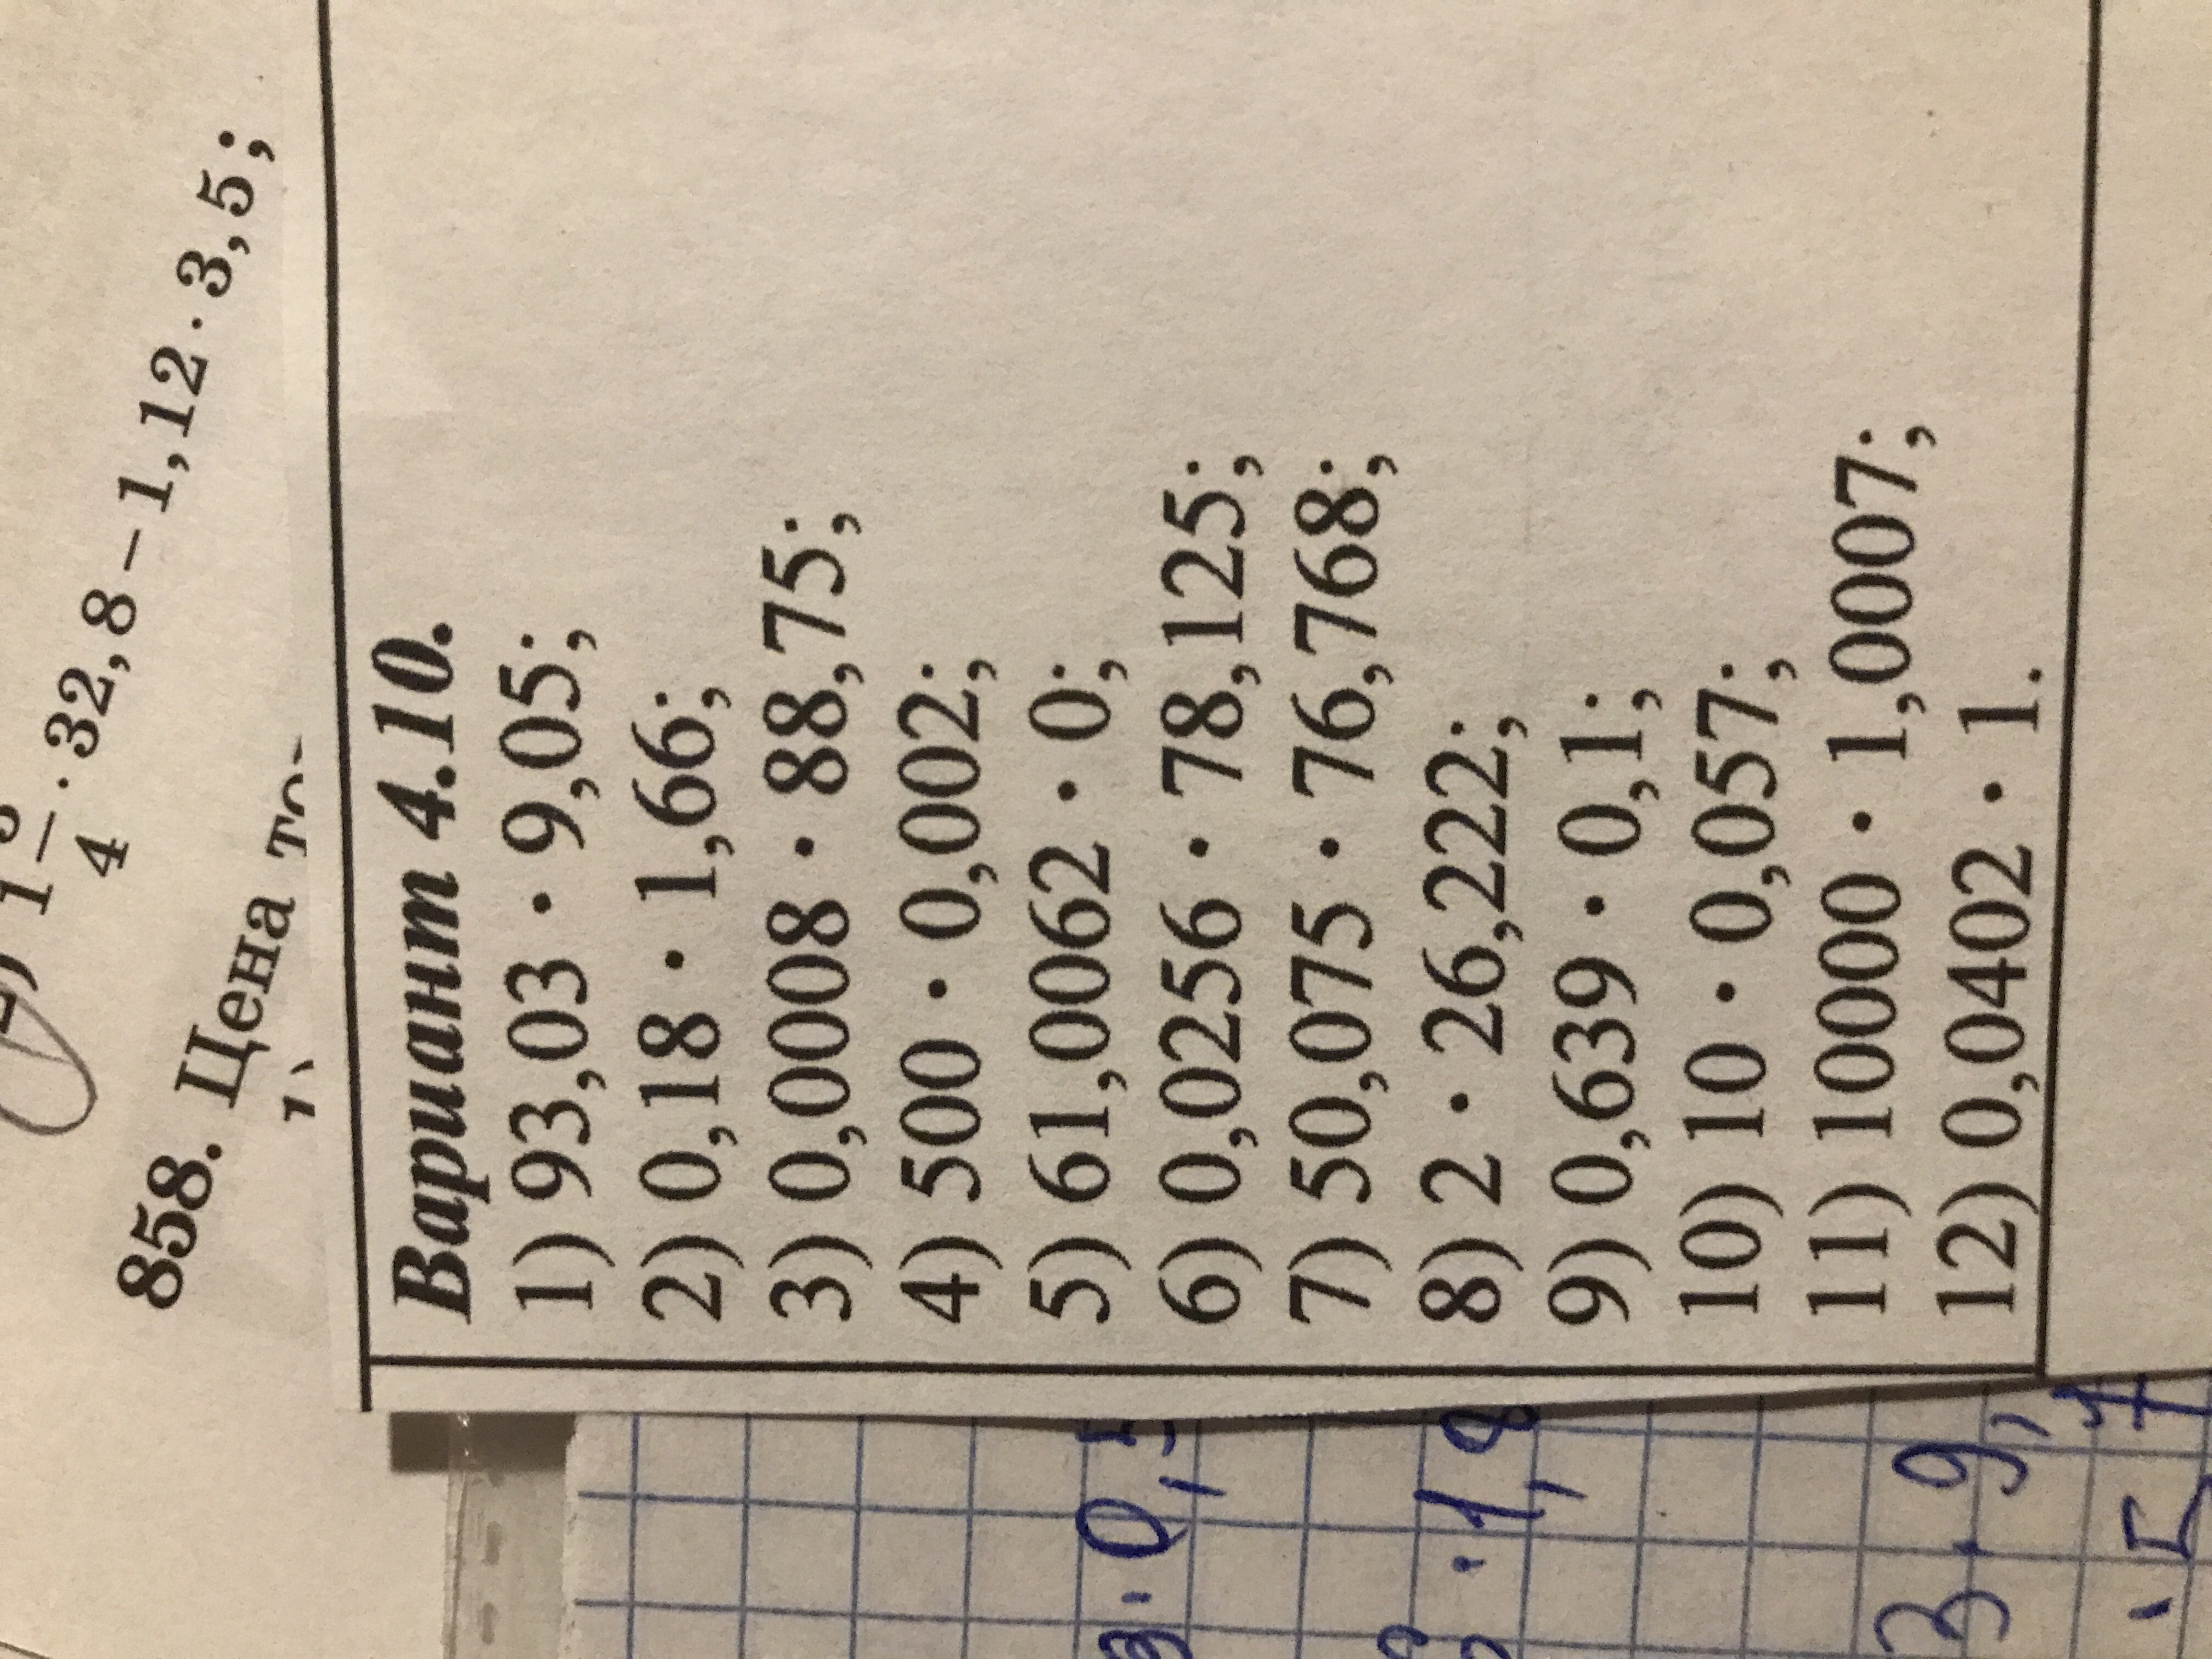 4
1 — · 32,8 – 1,12 · 3,5;
858. Цена
Вариант 4.10.
1) 93,03 · 9,05;
2) 0,18 · 1,66;
3) 0,0008 · 88,75;
4) 500 · 0,002;
5) 61,0062 · 0;
6) 0,0256 · 78,125;
7) 50,075 · 76,768;
8) 2 · 26,222;
9) 0,639 · 0,1;
10) 10 · 0,057;
11) 10000 · 1,0007;
12) 0,0402 · 1.
3 · 0,5
· 1,8
3 · 9,
· 5,7